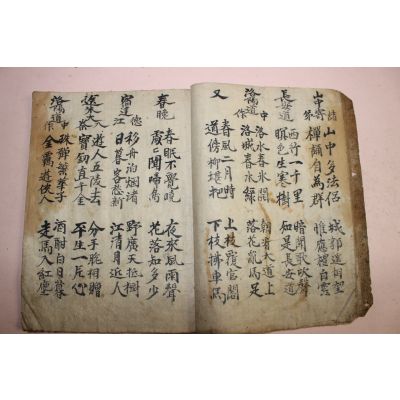 山中寄諸弟
山中多法侶
禪誦自為群
城郭遙相望
惟應禮白雲
長安道
西行一千里
暝色生寒樹
暗聞歌吹聲
知是長安道
洛陽道中
洛水春氷開
洛城春水綠
朝看大道上
落花亂馬足
又
春風二月時
道傍柳堪把
上枝覆官閣
下枝拂車馬
春曉
春眠不覺曉
處々聞啼鳥
夜來風雨聲
花落知多少
宿建德江
移舟泊烟渚
日暮客愁新
野廣天低樹
江清月近人
送朱大入秦
遊人五陵去
寶釖直千金
分手脫相贈
平生一片心
洛陽道中作
珠彈繁華子
金羈遊俠人
酒酣白日暮
走馬入紅塵